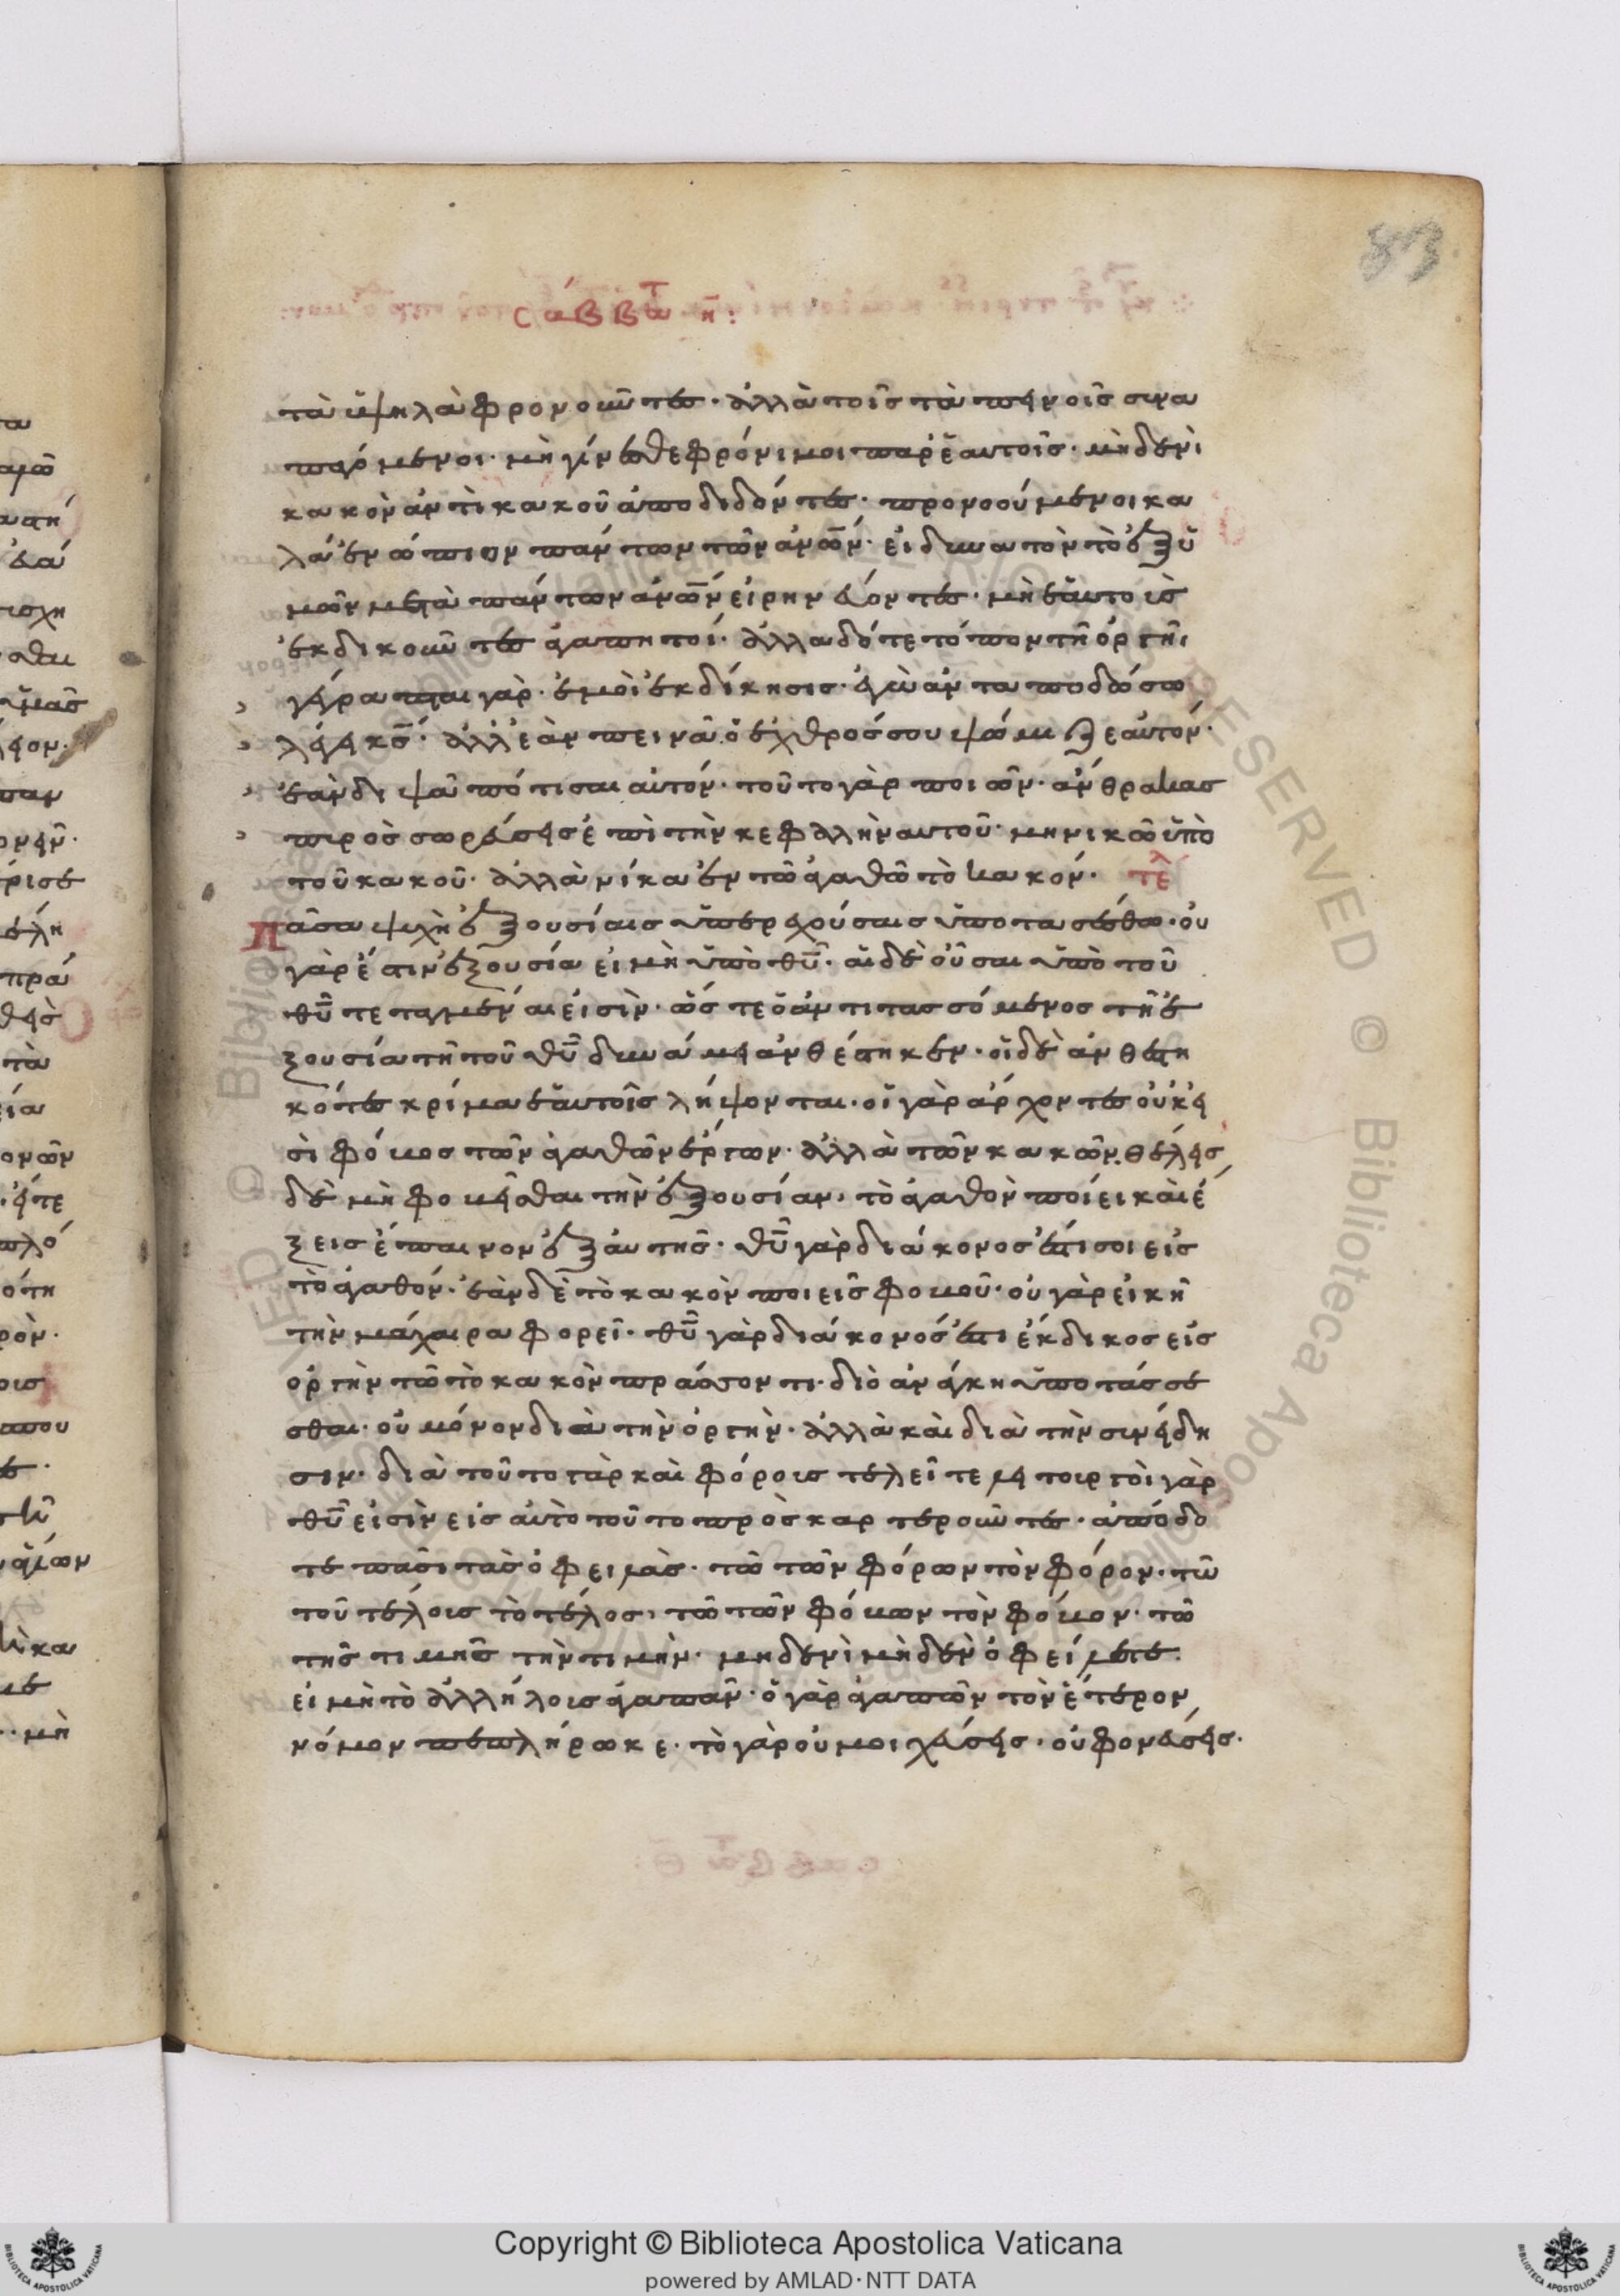 83
σάββατ η:
τὰ ὑψηλὰ φρονοῦντες· ἀλλὰ τοῖς ταπεινοῖς συνα
παγόμενοι· μὴ γίνεσθε φρόνιμοι παρ' ἑαυτοῖς· μηδενὶ
κακὸν ἀντὶ κακοῦ ἀποδιδόντες· προνοούμενοι κα
λὰ ἐνώπιον πάντων τῶν ἀνῶν· εἰ δυνατὸν τὸ ἐξ ὑ
μῶν μετὰ πάντων ἀνῶν εἰρηνεύοντες· μὴ ἑαυτοὺς
ἐκδικοῦντες ἀγαπητοί· ἀλλὰ δότε τόπον τῆ ὀργῆι
γέγραπται γάρ· ἐμοὶ ἐκδίκησις· ἐγὼ ἀνταποδώσω
λέγει κς· ἀλλ' ἐὰν πεινᾶ ὁ ἐχθρός σου ψώμιζε αὐτόν·
ἐὰν διψᾶ πότισαι αὐτόν· τοῦτο γὰρ ποιῶν· ἄνθρακας
πυρὸς σωρεύσεις ἐπὶ τὴν κεφαλὴν αυτοῦ· μὴ νικῶ ὑπὸ
τοῦ κακοῦ· ἀλλὰ νίκα ἐν τῶ ἀγαθῶ τὸ κακόν· τελ
Πᾶσα ψυχὴ ἐξουσίαις ὑπερεχούσαις ὑποτασέσθω· ου
γάρ ἐστιν ἐξουσία εἰ μὴ ὑπὸ θυ· αἱ δὲ οὖσαι ὑπὸ τοῦ
θυ τεταγμέναι εἰσὶν· ὥστε ὁ ἀντιτασσόμενος τῆ ἐ
ξουσία τῆ τοῦ θυ δυνάμει ἀνθέστηκεν· οἱ δὲ ἀνθεστη
κότες κρίμα ἑαυτοῖς λήψονται· οἱ γὰρ ἄρχοντες οὐκ εἰ
σὶ φόβος τῶν ἀγαθῶν ἔργων· ἀλλὰ τῶν κακῶν. θέλεις
δὲ μὴ φοβεῖσθαι τὴν ἐξουσίαν, τὸ ἀγαθὸν ποίει καὶ ἕ
ξεις ἔπαινον ἐξ αὐτῆς· θυ γὰρ διάκονος ἐστι σοι εἰς
τὸ ἀγαθόν· ἐὰν δὲ τὸ κακὸν ποιεῖς φοβοῦ· οὐ γὰρ εἰκῆ
τὴν μάχαιρα φορεῖ· θυ γὰρ διάκονός ἐστι ἔκδικος εἰς
ὀργὴν τῶ τὸ κακὸν πράσσοντι· διὸ ἀνάγκη ὑποτάσσε
σθαι· οὐ μόνον διὰ τὴν ὀργήν· ἀλλὰ καὶ διὰ τὴν συνείδη
σιν· διὰ τοῦτο γὰρ καὶ φόρους τελεῖτε λειτουργοὶ γὰρ
θυ εἰσὶν εἰς αὐτὸ τοῦτο προσκαρτεροῦντες· ἀπόδο
τε πᾶσι τὰς ὀφειλάς· τῶ τῶν φόρων τὸν φόρον· τῶ
τοῦ τέλους τὸ τέλος, τῶ τῶν φόβων τὸν φόβον· τῶ
τῆς τιμῆς τὴν τιμὴν· μηδενὶ μηδὲν ὀφείλετε·
εἰ μὴ τὸ ἀλλήλους ἀγαπᾶν· ὁ γὰρ ἀγαπῶν τὸν ἕτερον
νόμον πεπλήρωκε· τὸ γὰρ οὐ μοιχεύσεις· οὐ φονεύσεις·
Copyright © Biblioteca Apostolica Vaticana
powered by AMLAD·NTT DATA